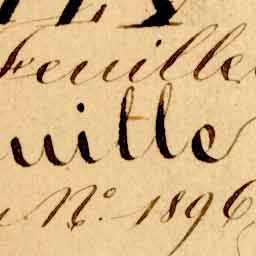 Feuille
uille
Nº 1896